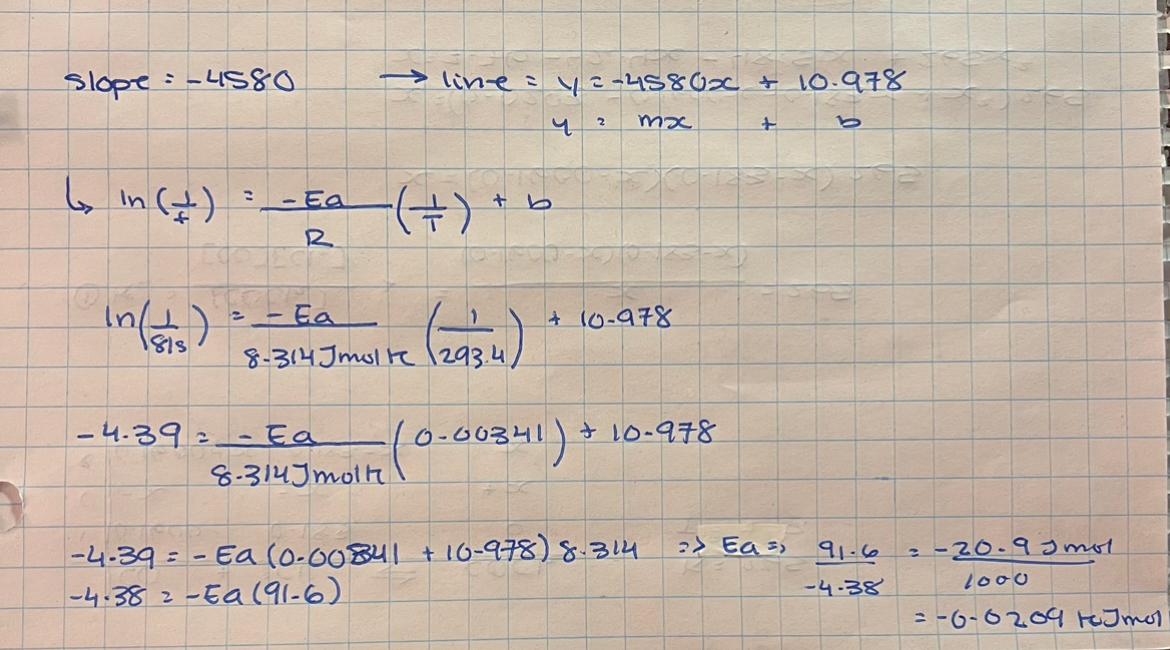 slope = -4580 → line = y = -4580x + 10.978
y = mx + b
↳ ln(1/t) = -Ea/R (1/T) + b
ln(1/81s) = -Ea/8.314 Jmol K (1/293.4) + 10.978
-4.39 = -Ea/8.314 Jmol K (0.00341) + 10.978
-4.39 = -Ea (0.00341 + 10.978) 8.314 => Ea => 91.6/-4.38 = -20.9 Jmol/1000
-4.38 = -Ea (91.6)
= -0.0209 kJmol